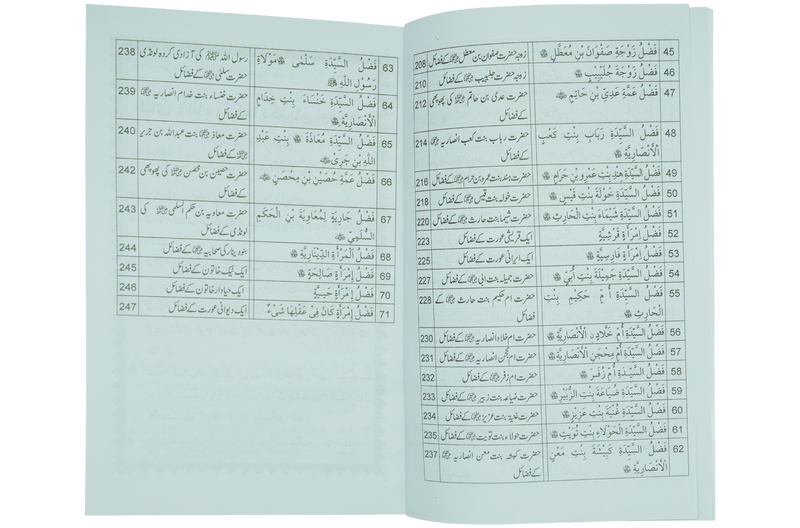 45 فَضْلُ زَوْجَةِ صَفْوَانَ بْنِ مُعَطَّلٍ زوجہ حضرت صفوان بن معطل کے فضائل 208
46 فَضْلُ زَوْجَةِ جُلَيْبِيبٍ زوجہ حضرت جلیبیب کے فضائل 210
47 فَضْلُ عَمَّةِ عَدِيِّ بْنِ حَاتِمٍ حضرت عدی بن حاتم کی پھوپھی 212
کے فضائل
48 فَضْلُ السَّيِّدَةِ رَبَابَ بِنْتِ كَعْبٍ حضرت رباب بنت کعب انصاریہ 214
الْأَنْصَارِيَّةِ کے فضائل
49 فَضْلُ السَّيِّدَةِ هِنْدٍ بِنْتِ عَمْرِو بْنِ حَرَامٍ حضرت ہند بنت عمرو بن حرام کے فضائل 216
50 فَضْلُ السَّيِّدَةِ خَوْلَةَ بِنْتِ قَيْسٍ حضرت خولہ بنت قیس کے فضائل 218
51 فَضْلُ السَّيِّدَةِ شَيْمَاءَ بِنْتِ الْحَارِثِ حضرت شیما بنت حارث کے فضائل 220
52 فَضْلُ امْرَأَةٍ قُرَشِيَّةٍ ایک قریشی عورت کے فضائل 223
53 فَضْلُ امْرَأَةٍ فَارِسِيَّةٍ ایک ایرانی عورت کے فضائل 225
54 فَضْلُ السَّيِّدَةِ جَمِيْلَةَ بِنْتِ أُبَيٍّ حضرت جمیلہ بنت ابی کے فضائل 227
55 فَضْلُ السَّيِّدَةِ أُمِّ حَكِيْمٍ بِنْتِ حضرت ام حکیم بنت حارث کے 228
الْحَارِثِ فضائل
56 فَضْلُ السَّيِّدَةِ أُمِّ خَلَّادٍ الْأَنْصَارِيَّةِ حضرت ام خلاد انصاریہ کے فضائل 230
57 فَضْلُ السَّيِّدَةِ أُمِّ مِحْجَنٍ الْأَنْصَارِيَّةِ حضرت ام محجن انصاریہ کے فضائل 231
58 فَضْلُ السَّيِّدَةِ أُمِّ زُفَرَ حضرت ام زفر کے فضائل 232
59 فَضْلُ السَّيِّدَةِ ضُبَاعَةَ بِنْتِ الزُّبَيْرِ حضرت ضباعہ بنت زبیر کے فضائل 233
60 فَضْلُ السَّيِّدَةِ بِنْتِ عَزِيْزٍ حضرت بنت عزیز کے فضائل 234
61 فَضْلُ السَّيِّدَةِ الْحَوْلَاءِ بِنْتِ تُوَيْتٍ حضرت حولاء بنت تویت کے فضائل 235
62 فَضْلُ السَّيِّدَةِ كَبِيْشَةَ بِنْتِ مَعْنٍ حضرت کبشہ بنت معن انصاریہ 237
الْأَنْصَارِيَّةِ کے فضائل
63 فَضْلُ السَّيِّدَةِ سَلْمٰى مَوْلَاةِ رسول اللہ ﷺ کی آزاد کردہ لونڈی 238
رَسُوْلِ اللهِ ﷺ حضرت سلمیٰ کے فضائل
64 فَضْلُ السَّيِّدَةِ خَنْسَاءَ بِنْتِ خِذَامٍ حضرت خنساء بنت خذام انصاریہ 239
الْأَنْصَارِيَّةِ کے فضائل
65 فَضْلُ السَّيِّدَةِ مُعَاذَةَ بِنْتِ عَبْدِ حضرت معاذہ بنت عبداللہ بن جریر 240
اللهِ بْنِ جَرِيْرٍ کے فضائل
66 فَضْلُ عَمَّةِ حُصَيْنِ بْنِ مِحْصَنٍ حضرت حصین بن محصن کی پھوپھی 242
کے فضائل
67 فَضْلُ جَارِيَةٍ لِمُعَاوِيَةَ بْنِ الْحَكَمِ حضرت معاویہ بن حکم السلمی کی 243
السُّلَمِيِّ لونڈی کے فضائل
68 فَضْلُ الْمَرْأَةِ الدِّيْنَارِيَّةِ بنو دینار کی صحابیہ کے فضائل 244
69 فَضْلُ إِمْرَأَةٍ صَالِحَةٍ ایک نیک خاتون کے فضائل 245
70 فَضْلُ إِمْرَأَةٍ حَيِيَّةٍ ایک حیادار خاتون کے فضائل 246
71 فَضْلُ إِمْرَأَةٍ كَانَ فِيْ عَقْلِهَا شَيْءٌ ایک دیوانی عورت کے فضائل 247